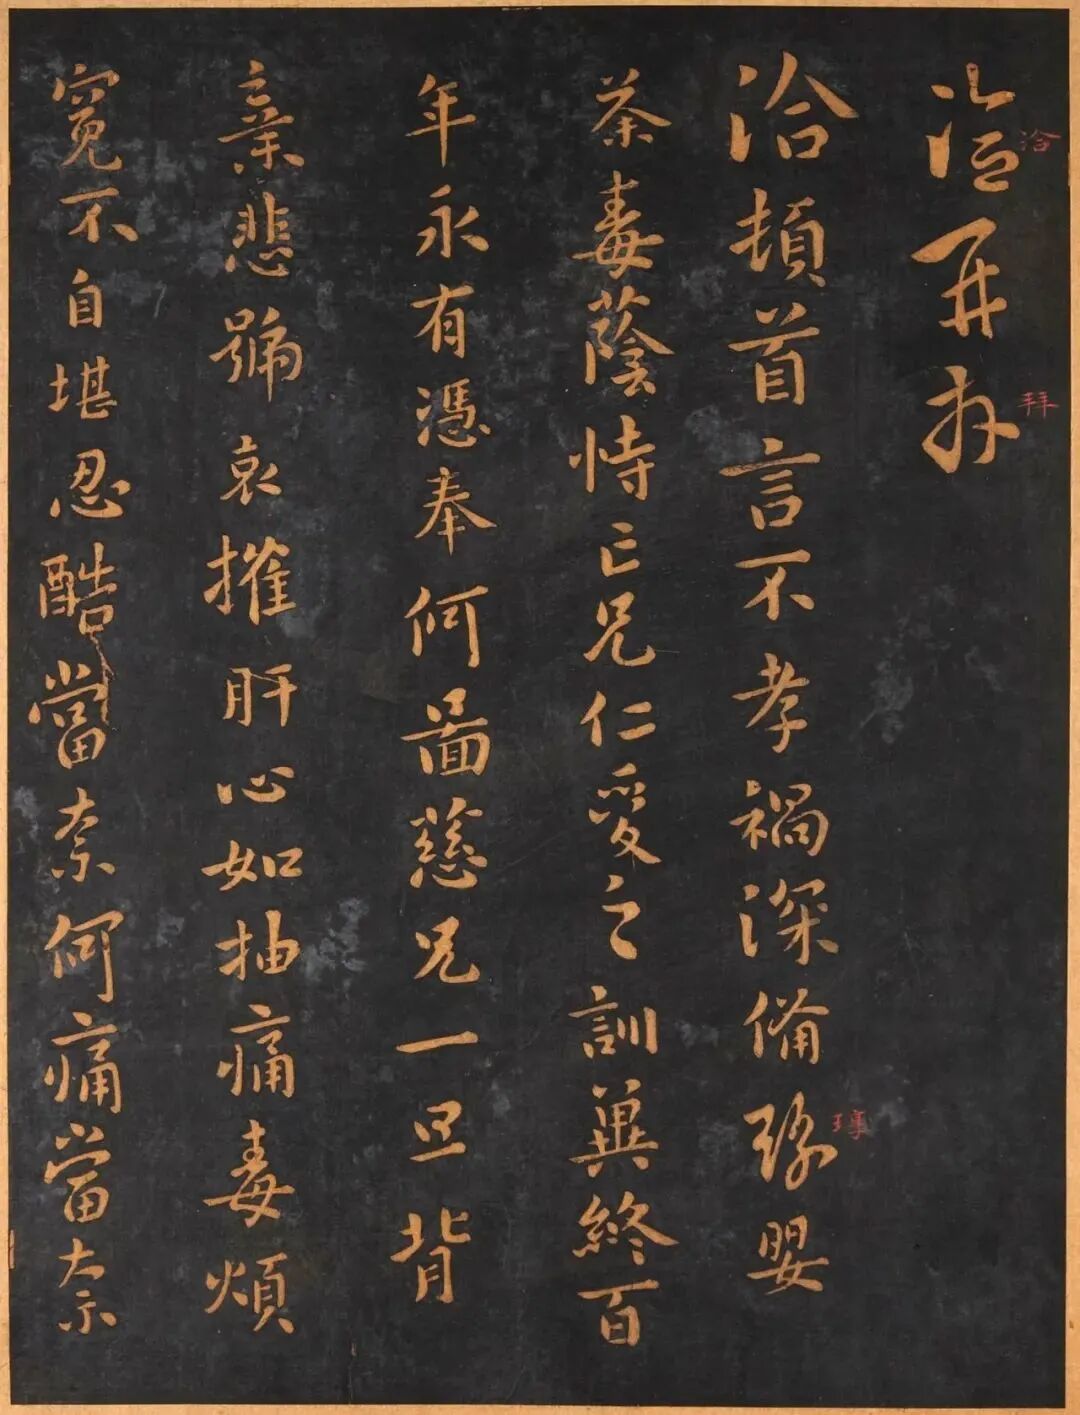 洽再拜
洽
拜
洽頓首言不孝禍深備豫嬰
荼毒蔭恃亡兄仁愛之訓冀終百
年永有憑奉何啚慈兄一旦背
棄悲號哀摧肝心如抽痛毒煩
冤不自堪忍酷當奈何痛當奈